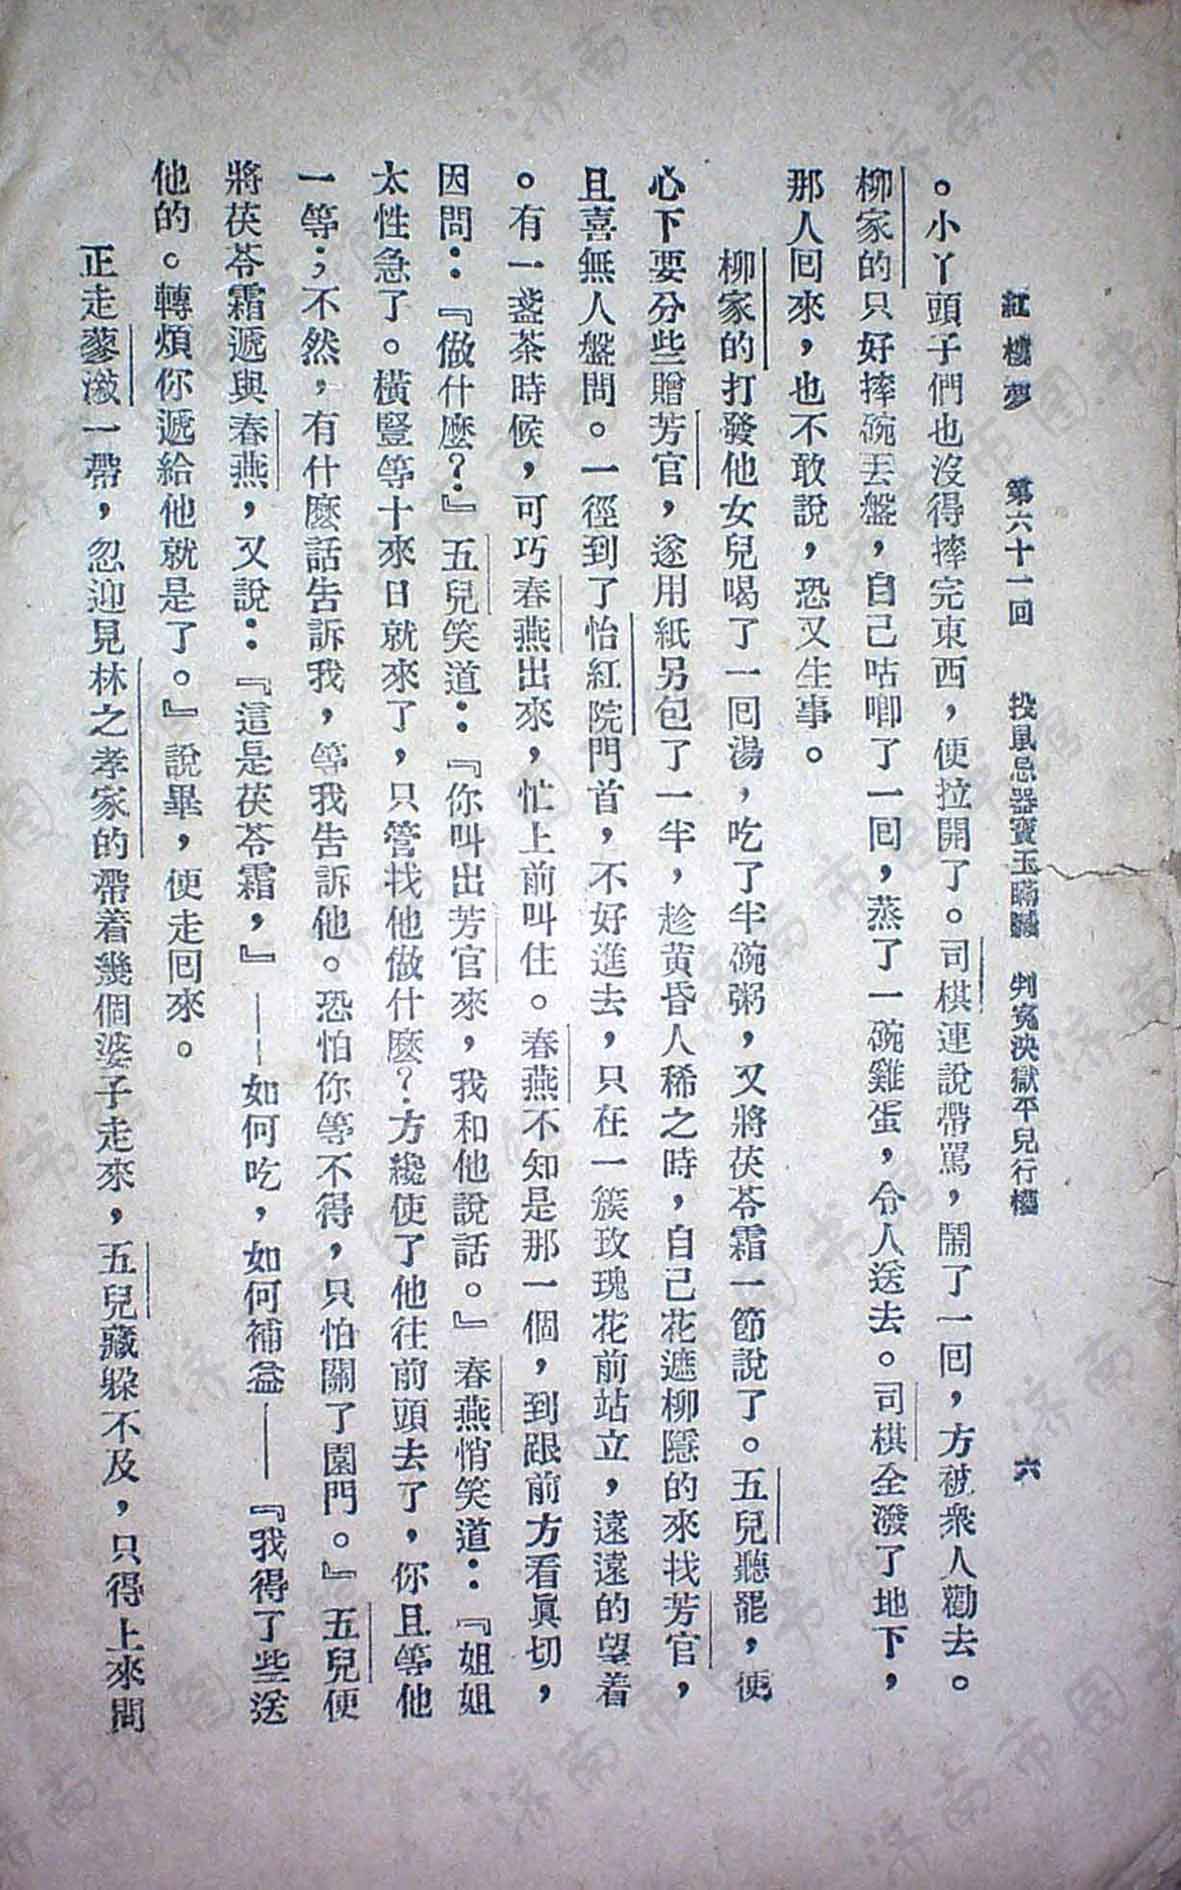 紅樓夢　第六十一回　投鼠忌器寶玉瞞贓　判冤決獄平兒行權　六
。小丫頭子們也沒得摔完東西，便拉開了。司棋連說帶罵，鬧了一回，方被衆人勸去。
柳家的只好摔碗丟盤，自己咕唧了一回，蒸了一碗雞蛋，令人送去。司棋全潑了地下，
那人回來，也不敢說，恐又生事。
柳家的打發他女兒喝了一回湯，吃了半碗粥，又將茯苓霜一節說了。五兒聽罷，便
心下要分些贈芳官，遂用紙另包了一半，趁黃昏人稀之時，自己花遮柳隱的來找芳官，
且喜無人盤問。一徑到了怡紅院門首，不好進去，只在一簇玫瑰花前站立，遠遠的望着
。有一盞茶時候，可巧春燕出來，忙上前叫住。春燕不知是那一個，到跟前方看眞切，
因問：『做什麼？』五兒笑道：『你叫出芳官來，我和他說話。』春燕悄笑道：『姐姐
太性急了。橫豎等十來日就來了，只管找他做什麼？方纔使了他往前頭去了，你且等他
一等；不然，有什麼話告訴我，等我告訴他。恐怕你等不得，只怕關了園門。』五兒便
將茯苓霜遞與春燕，又說：『這是茯苓霜，』——如何吃，如何補益——『我得了些送
他的。轉煩你遞給他就是了。』說畢，便走回來。
正走蓼漵一帶，忽迎見林之孝家的帶着幾個婆子走來，五兒藏躲不及，只得上來問
济南市图书馆